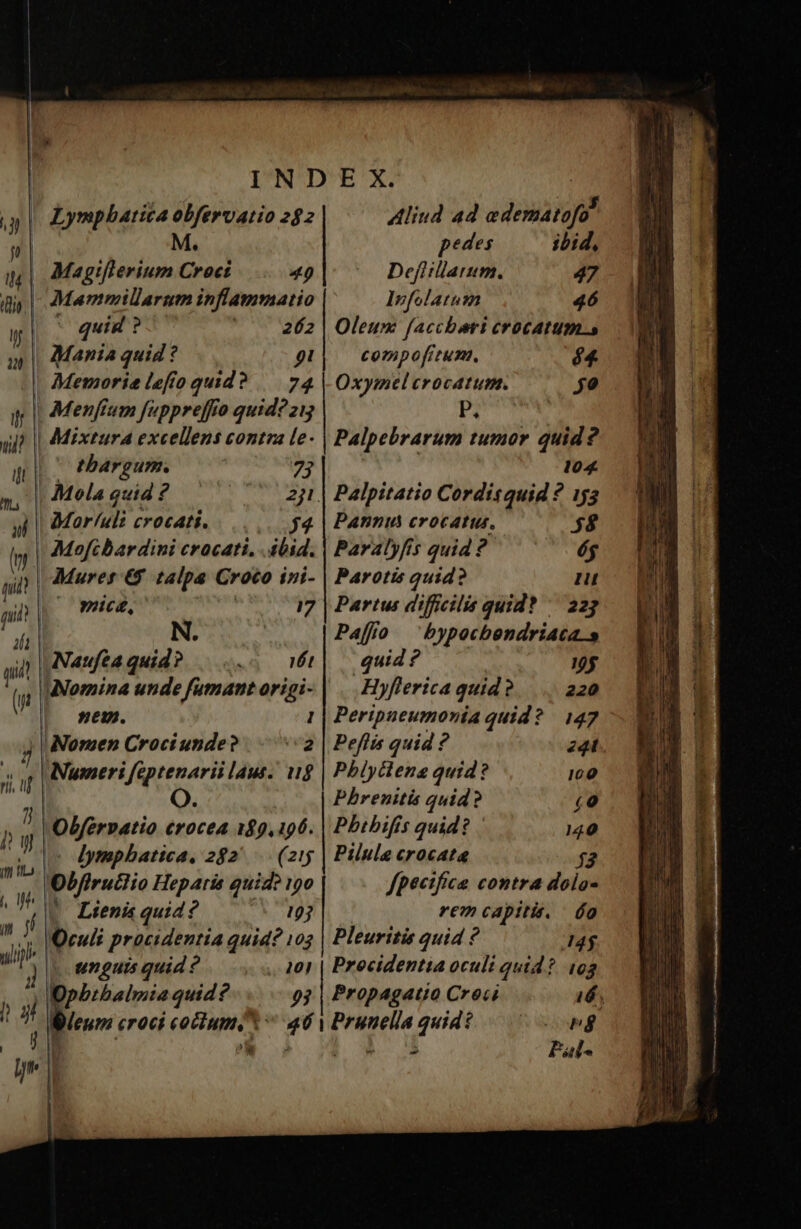 INDEX.
Lymphatica obſervatio 282
M.
Magiſterium Croci 49
Mammillarum inflammatio
quid? 262
Mania quid? 91
Memoriæ læſio quid? 74
Menſium ſuppreſſio quid? 213
Mixtura excellens contra le-
thargum. 73
Mola quid? 231
Morſuli crocati. 54
Moſchardini crocati. ibid.
Mures & talpæ Croco ini-
micæ, 17
N.
Nauſea quid? 161
Nomina unde ſumant origi-
nem. 1
Nomen Croci unde? 2
Numeri ſeptenarii laus. 118
O.
Obſervatio crocea 189, 196.
lymphatica, 282 (215
Obſtructio Heparis quid? 190
Lienis quid? 193
Oculi procidentia quid? 103
unguis quid? 101
Ophthalmia quid? 93
Oleum croci coctum, 46
Aliud ad œdematoſos
pedes ibid.
Deſtillatum. 47
Inſolatum 46
Oleum ſacchari crocatum
compoſitum. 84
Oxymel crocatum. 50
P.
Palpebrarum tumor quid?
104
Palpitatio Cordis quid? 153
Pannus crocatus. 58
Paralyſis quid? 65
Parotis quid? 111
Partus difficilis quid? 223
Paſſio hypochondriaca
quid? 195
Hyſterica quid? 220
Peripneumonia quid? 147
Peſtis quid? 241
Phlyctenæ quid? 100
Phrenitis quid? 60
Phthiſis quid? 140
Pilulæ crocatæ 52
ſpecificæ contra dolo-
rem capitis. 60
Pleuritis quid? 145
Procidentia oculi quid? 103
Propagatio Croci 16
Prunella quid? 118
Pul-